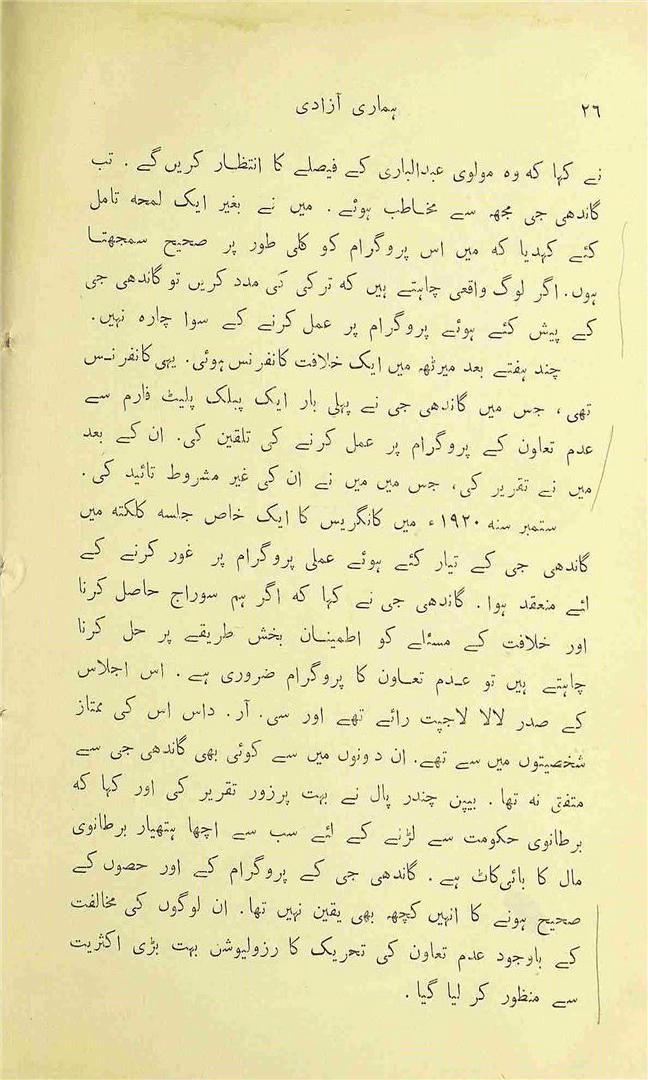 ۲٦ ہماری آزادی
نے کہا کہ وہ مولوی عبدالباری کے فیصلے کا انتظار کریں گے۔ تب
گاندھی جی مجھ سے مخاطب ہوئے۔ میں نے بغیر ایک لمحہ تامل
کئے کہدیا کہ میں اس پروگرام کو کلی طور پر صحیح سمجھتا
ہوں۔ اگر لوگ واقعی چاہتے ہیں کہ ترکی کی مدد کریں تو گاندھی جی
کے پیش کئے ہوئے پروگرام پر عمل کرنے کے سوا چارہ نہیں۔
چند ہفتے بعد میرٹھ میں ایک خلافت کانفرنس ہوئی۔ یہی کانفرنس
تھی، جس میں گاندھی جی نے پہلی بار ایک پبلک پلیٹ فارم سے
عدم تعاون کے پروگرام پر عمل کرنے کی تلقین کی۔ ان کے بعد
میں نے تقریر کی، جس میں میں نے ان کی غیر مشروط تائید کی۔
ستمبر سنہ ۱۹۲۰ء میں کانگریس کا ایک خاص جلسہ کلکتہ میں
گاندھی جی کے تیار کئے ہوئے عملی پروگرام پر غور کرنے کے
لئے منعقد ہوا۔ گاندھی جی نے کہا کہ اگر ہم سوراج حاصل کرنا
اور خلافت کے مسئلے کو اطمینان بخش طریقے پر حل کرنا
چاہتے ہیں تو عدم تعاون کا پروگرام ضروری ہے۔ اس اجلاس
کے صدر لالا لاجپت رائے تھے اور سی۔ آر۔ داس اس کی ممتاز
شخصیتوں میں سے تھے۔ ان دونوں میں سے کوئی بھی گاندھی جی سے
متفق نہ تھا۔ بیپن چندر پال نے بہت پرزور تقریر کی اور کہا کہ
برطانوی حکومت سے لڑنے کے لئے سب سے اچھا ہتھیار برطانوی
مال کا بائی کاٹ ہے۔ گاندھی جی کے پروگرام کے اور حصوں کے
صحیح ہونے کا انہیں کچھ بھی یقین نہیں تھا۔ ان لوگوں کی مخالفت
کے باوجود عدم تعاون کی تحریک کا رزولیوشن بہت بڑی اکثریت
سے منظور کر لیا گیا۔